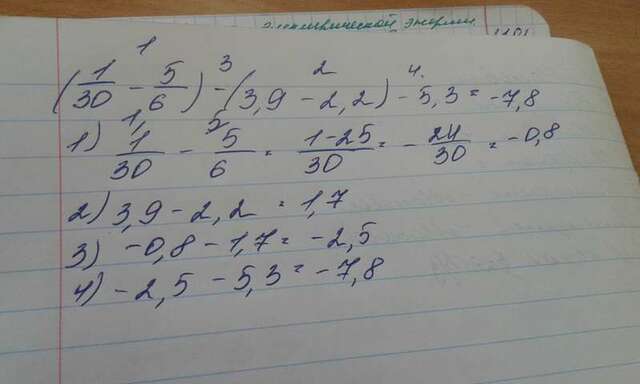 электрической энергии
1 3 2 4.
(1/30 - 5/6) - (3,9 - 2,2) - 5,3 = -7,8
1) 1^1/30 - 5^5/6 = 1-25/30 = -24/30 = -0,8
2) 3,9 - 2,2 = 1,7
3) -0,8 - 1,7 = -2,5
4) -2,5 - 5,3 = -7,8